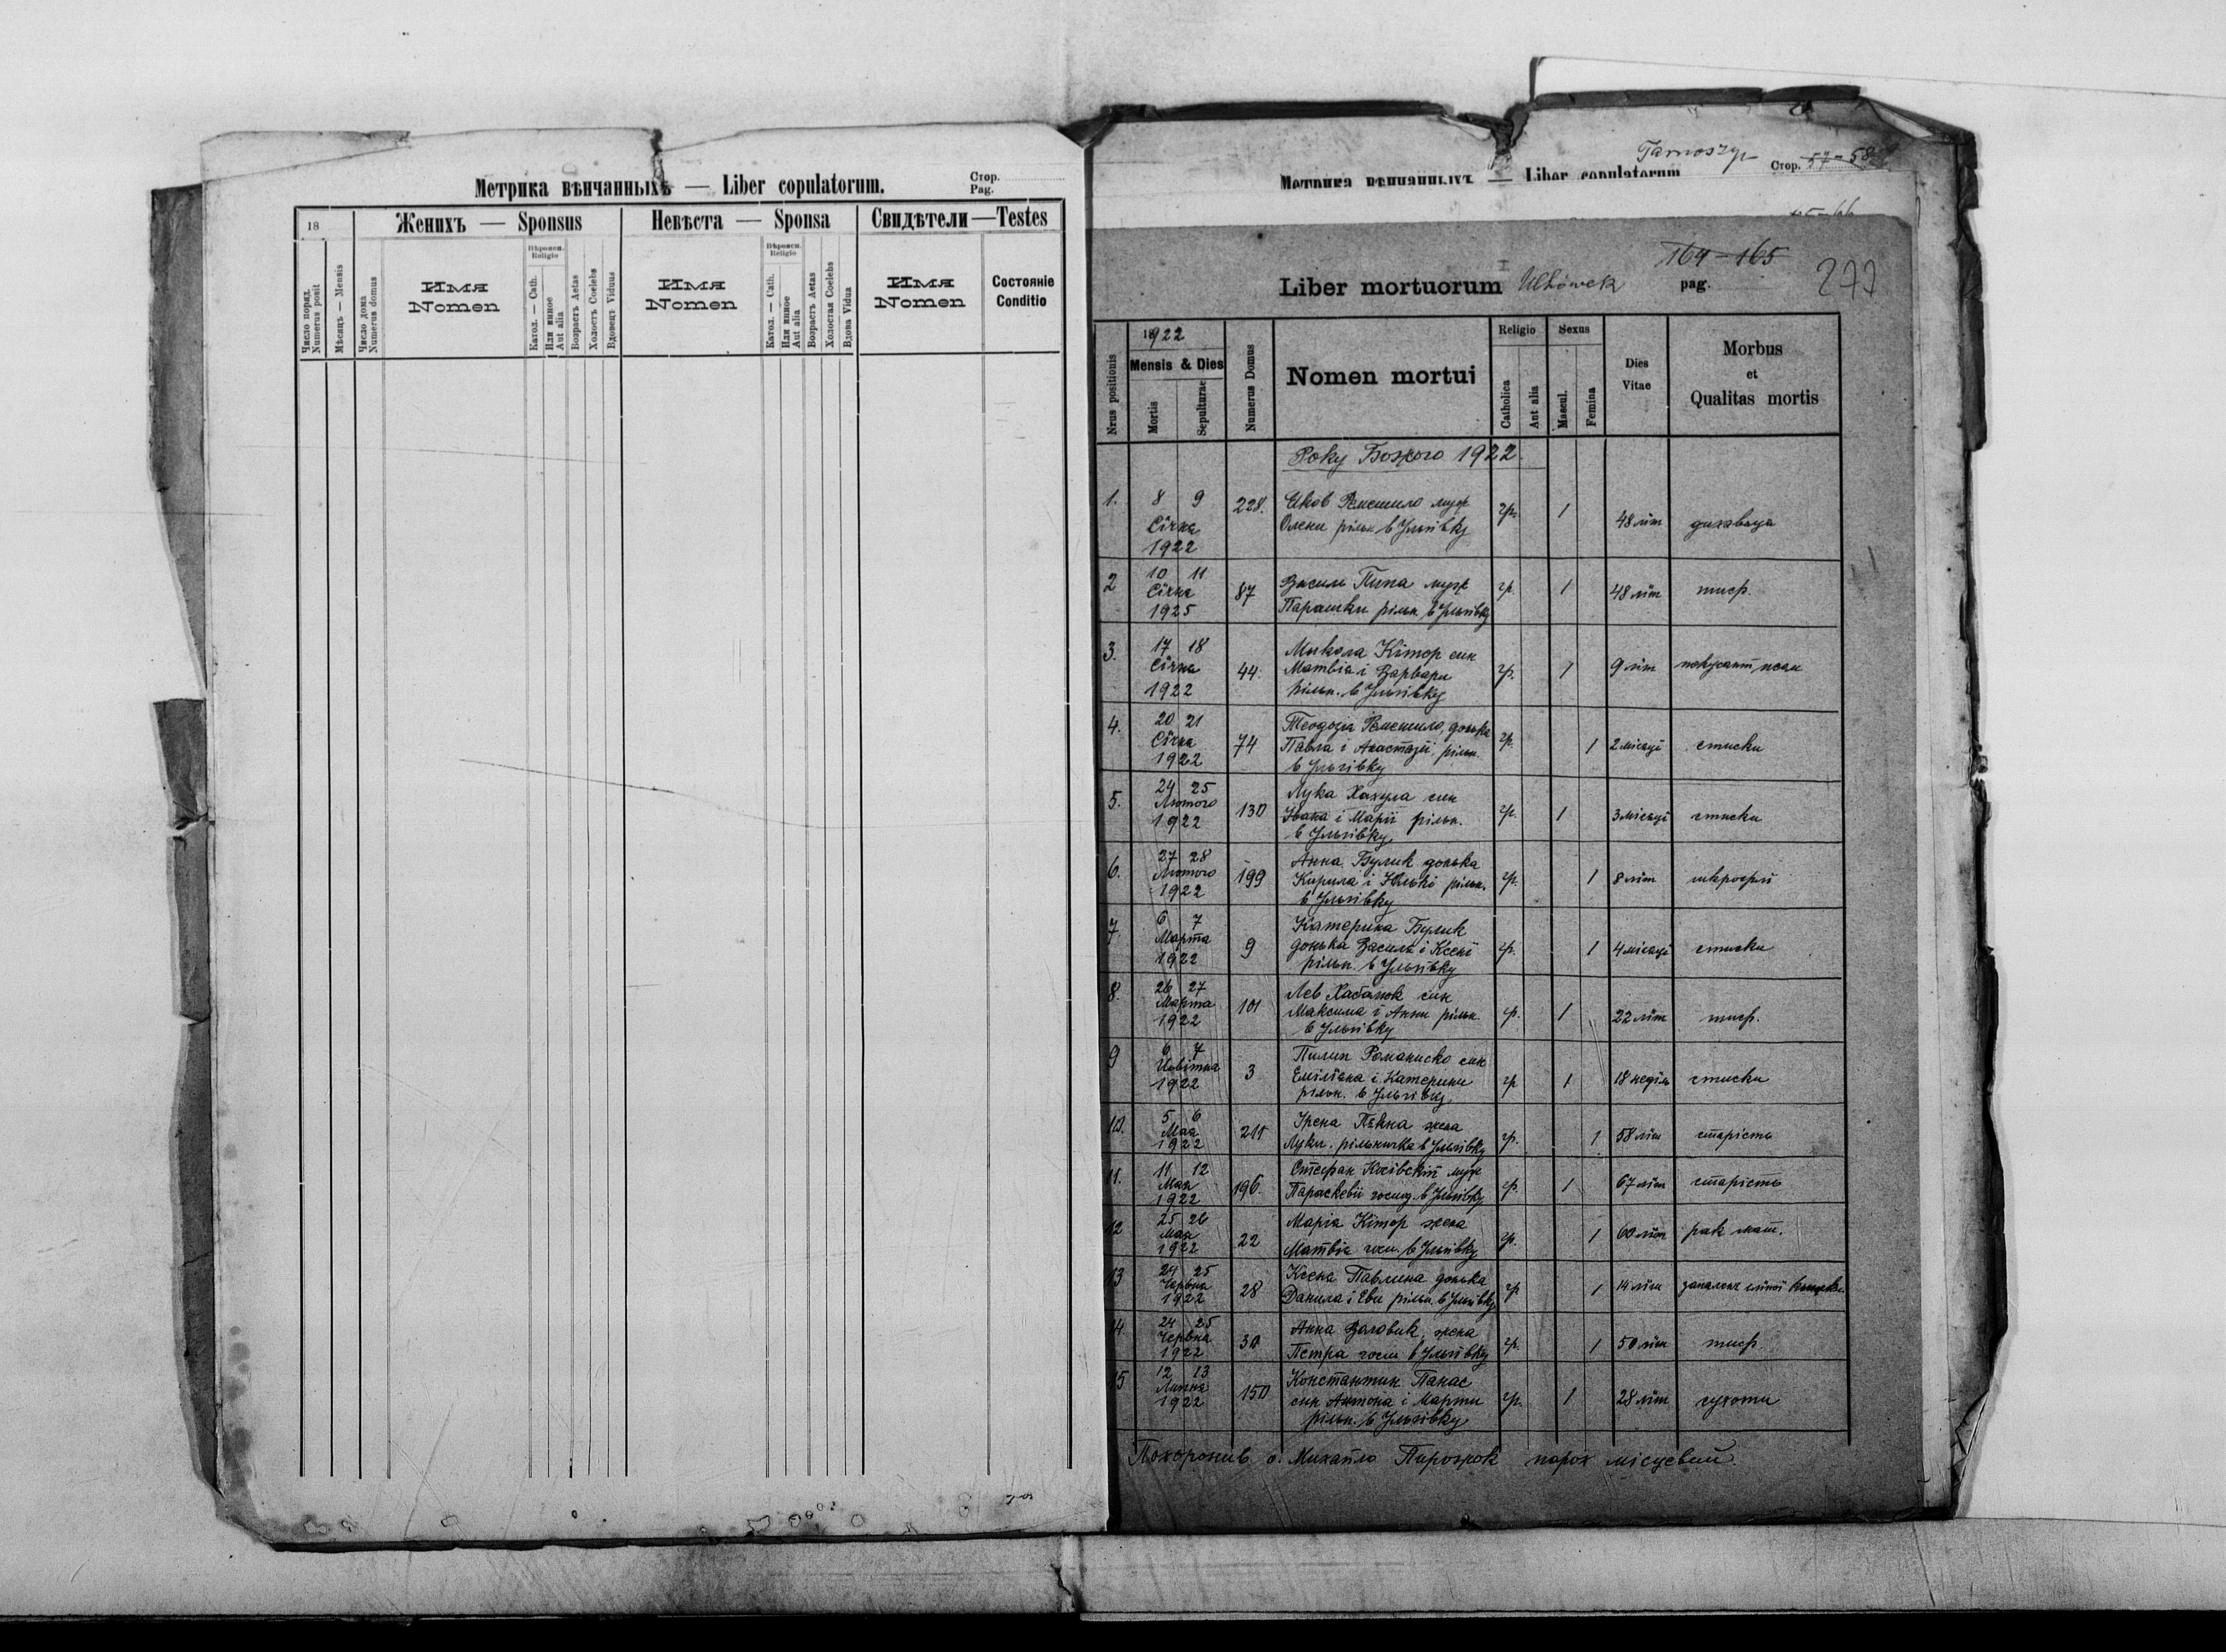 Метрика вѣнчанныхъ — Liber copulatorum.
Стор.
Pag.
18
Женихъ — Sponsus
Невѣста — Sponsa
Свидѣтели — Testes
Число поряд.
Numerus posit
Мѣсяцъ — Mensis
Число дома
Numerus domus
Имя
Nomen
Вѣроисп.
Religio
Катол. — Cath.
Или инное
Aut alia
Возрастъ Aetas
Холостъ Coelebs
Вдовецъ Viduus
Имя
Nomen
Вѣроисп.
Religio
Катол. — Cath.
Или инное
Aut alia
Возрастъ Aetas
Холостая Coelebs
Вдова Vidua
Имя
Nomen
Состояніе
Conditio
Tarnoszyn
Стор. 57-58
Метрика вѣнчанныхъ — Liber copulatorum
164-165
277
Liber mortuorum Uhnówek pag.
Nrus positionis
1922
Mensis & Dies
Mortis
Sepulturae
Numerus Domus
Nomen mortui
Religio
Catholica
Aut alia
Sexus
Mascul.
Femina
Dies
Vitae
Morbus
et
Qualitas mortis
Року Божого 1922.
1. 8 9 Січня 1922 228. муж
Олени рільн в Ульгівку гр. 1 48 літ
2 10 11 Січня 1925 87 Василь Пипа муж
Парашки рільн. в Ульгівку гр. 1 48 літ тиф.
3. 17 18 Січня 1922 44. Микола Кітор син
Матвія і Варвари
рільн. в Ульгівку гр. 1 9 літ
4. 20 21 Січня 1922 74 Теодозія донька
Павла і Анастазії, рільн.
в Ульгівку гр. 1 2 місяці стиски
5. 24 25 Лютого 1922 130 Лука Хахула син
Івана і Марії рільн.
в Ульгівку гр. 1 3 місяці стиски
6. 27 28 Лютого 1922 199 Анна Булик донька
Кирила і Юльки рільн.
в Ульгівку гр. 1 8 літ шкрофлі
7. 6 7 Марта 1922 9 Катерина Булик
донька Василя і Ксені
рільн. в Ульгівку гр. 1 4 місяці стиски
8. 26 27 Марта 1922 101 Лев син
Максима і Анни рільн.
в Ульгівку гр. 1 22 літ тиф.
9 6 7 Цвітня 1922 3 Пилип Романиско син
Еміліяна і Катерини
рільн. в Ульгівку гр 1 18 неділь стиски
10. 5 6 Мая 1922 211 Ірена жена
Луки рільничка в Ульгівку гр. 1 58 літ старість
11. 11 12 Мая 1922 196. Стефан муж
Параскевії госпд. в Ульгівку гр. 1 67 літ старість
12 25 26 Мая 1922 22 Марія Кітор жена
Матвія госп. в Ульгівку гр. 1 60 літ рак мат.
13 24 25 Червня 1922 28 Ксеня Павлина донька
Данила і Еви рільн. в Ульгівку гр 1 14 літ запалень сліпої кишки
14. 24 25 Червня 1922 30 Анна жена
Петра госп в Ульгівку гр. 1 50 літ тиф.
15 12 13 Липня 1922 150 Константин Панас
син Антона і Марти
рільн. в Ульгівку гр. 1 28 літ сухоти
Похоронив о. Михайло Пирожок парох місцевий.